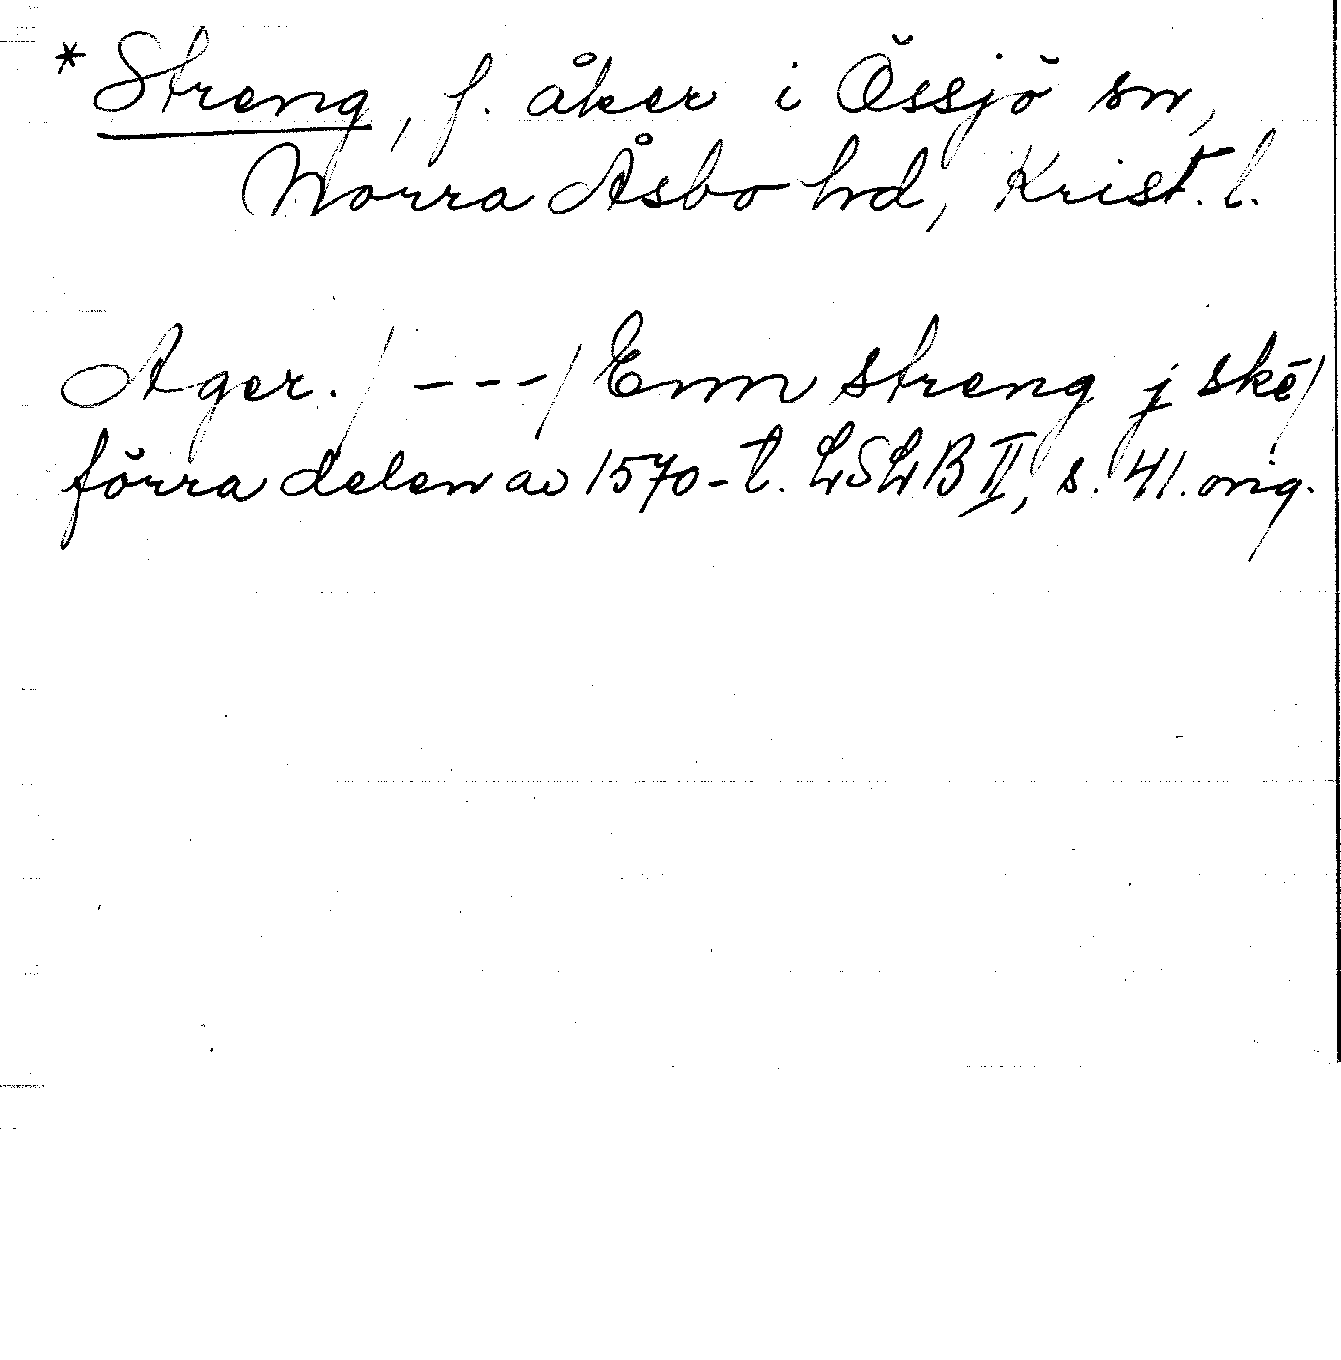 *Streng, f. åker i Össjö sn,
Norra Åsbo hd, Krist. l.
Ager. / --- / Enn streng j ske /
förra delen av 1570-t. LSLB II, s. 41. orig.